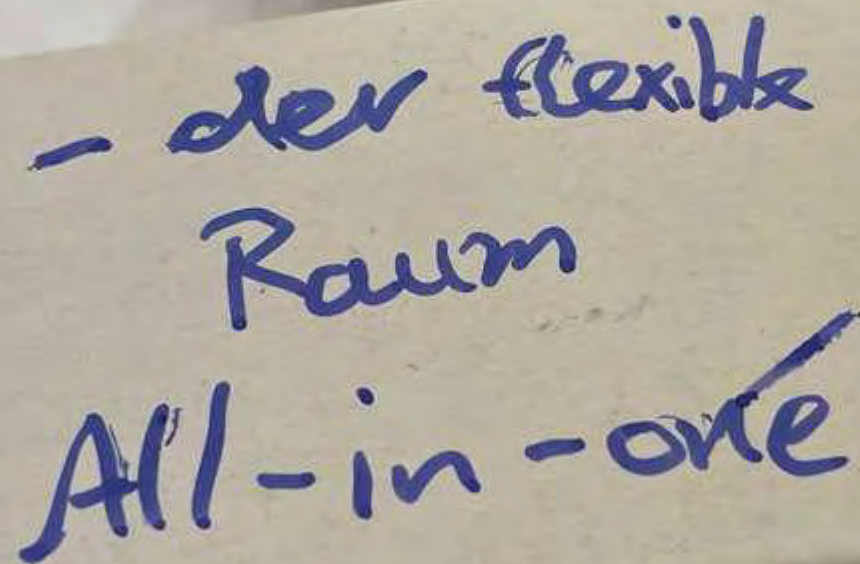 - der flexible
Raum
All-in-one